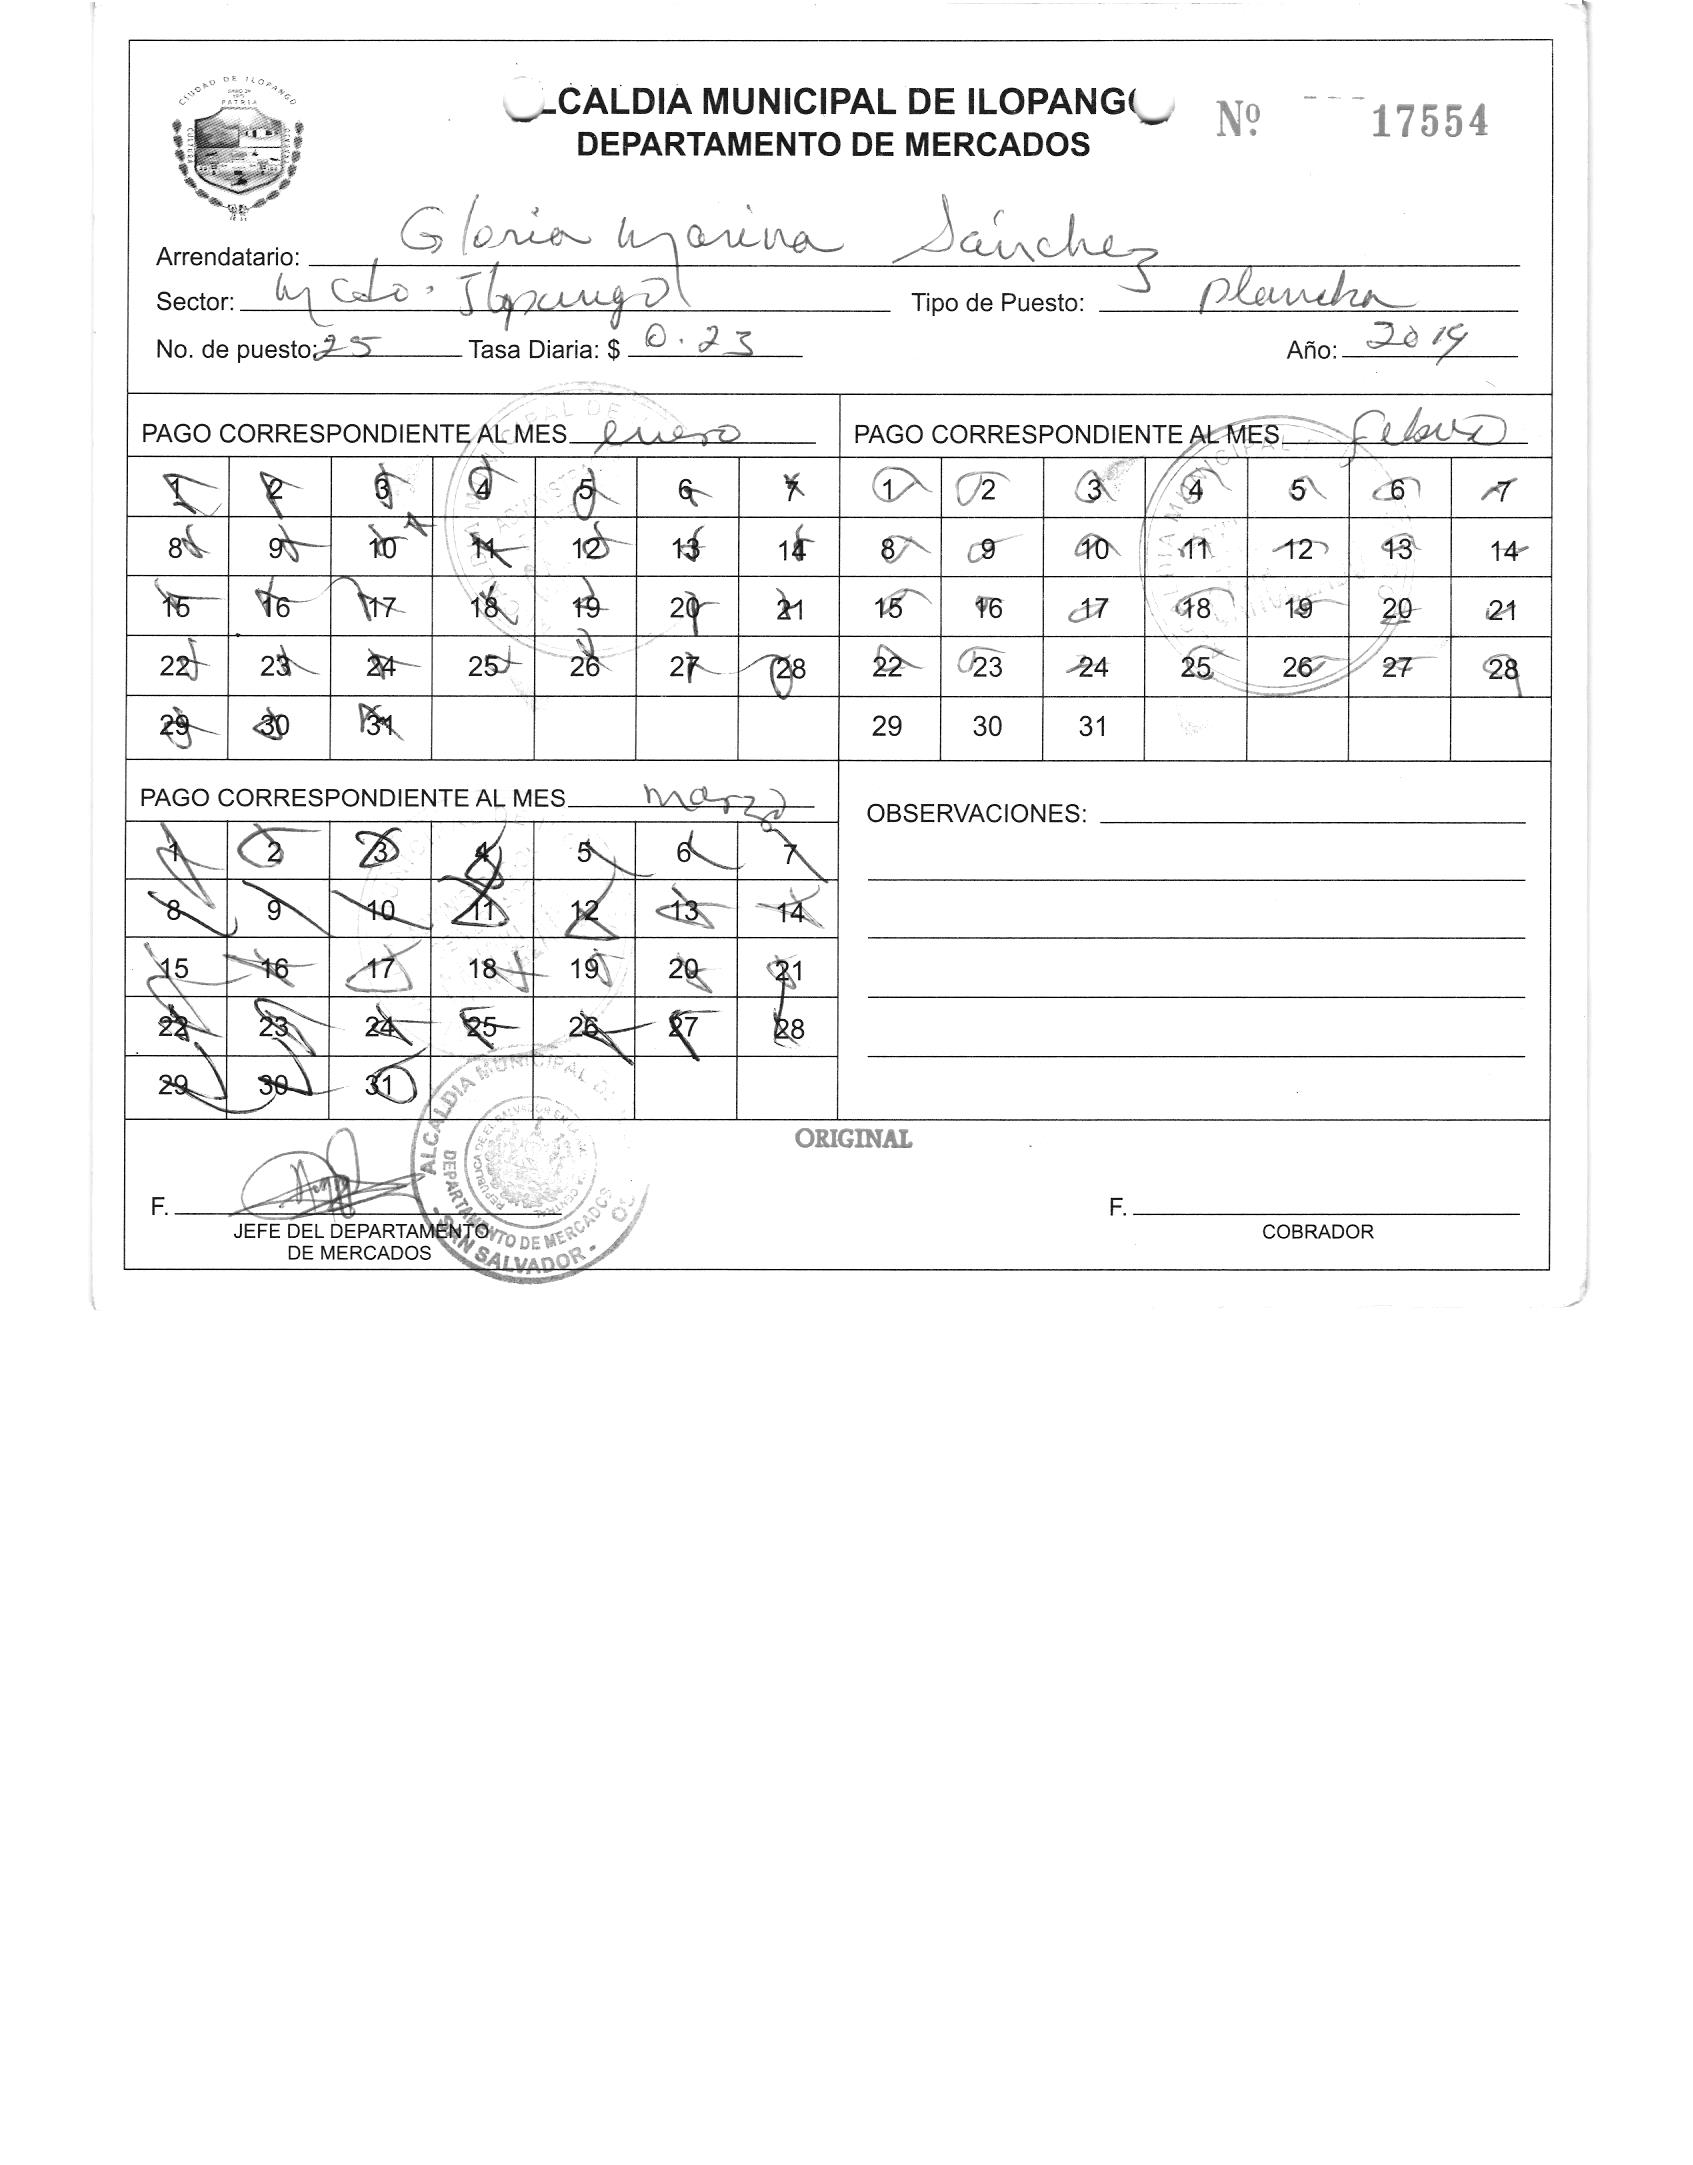 CIUDAD DE ILOPANGO
PATRIA
CULTURA
LCALDIA MUNICIPAL DE ILOPANGO
DEPARTAMENTO DE MERCADOS
Nº 17554
Arrendatario: Gloria Marina Sánchez
Sector: Mcdo. Ilopango Tipo de Puesto: plancha
No. de puesto: 25 Tasa Diaria: $ 0.23 Año: 2019
PAGO CORRESPONDIENTE AL MES enero
1 2 3 4 5 6 7
8 9 10 11 12 13 14
15 16 17 18 19 20 21
22 23 24 25 26 27 28
29 30 31
PAGO CORRESPONDIENTE AL MES febrero
1 2 3 4 5 6 7
8 9 10 11 12 13 14
15 16 17 18 19 20 21
22 23 24 25 26 27 28
29 30 31
PAGO CORRESPONDIENTE AL MES marzo
1 2 3 4 5 6 7
8 9 10 11 12 13 14
15 16 17 18 19 20 21
22 23 24 25 26 27 28
29 30 31
OBSERVACIONES:
ORIGINAL
F.
JEFE DEL DEPARTAMENTO
DE MERCADOS
ALCALDIA MUNICIPAL DE
DEPARTAMENTO DE MERCADOS
REPUBLICA DE EL SALVADOR EN LA AMERICA CENTRAL
- SAN SALVADOR -
F.
COBRADOR